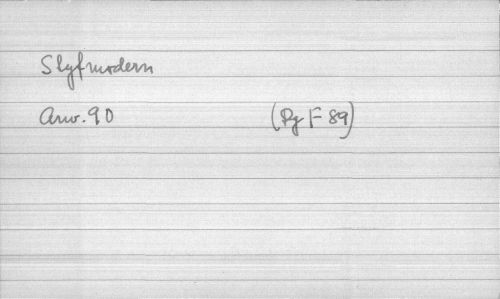 Slyfmodern
Anv. 90 (Rg F 89)